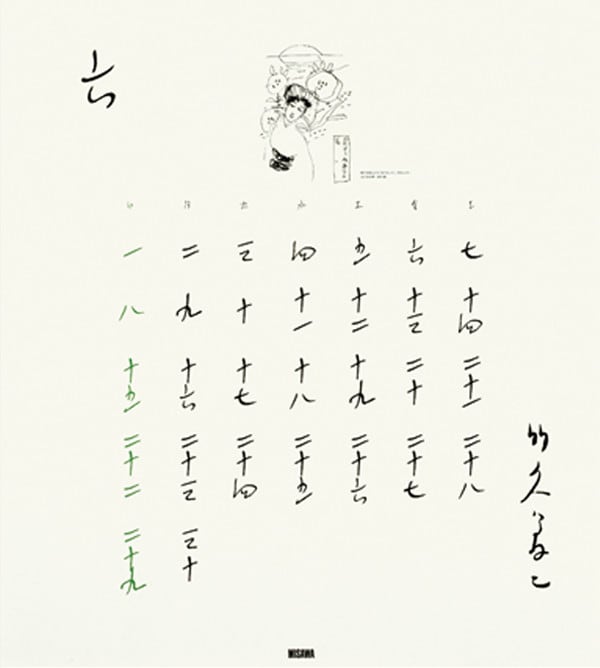 六
日 月 火 水 木 金 土
一 二 三 四 五 六 七
八 九 十 十一 十二 十三 十四
十五 十六 十七 十八 十九 二十 二十一
二十二 二十三 二十四 二十五 二十六 二十七 二十八
二十九 三十
竹久夢二
MISAWA